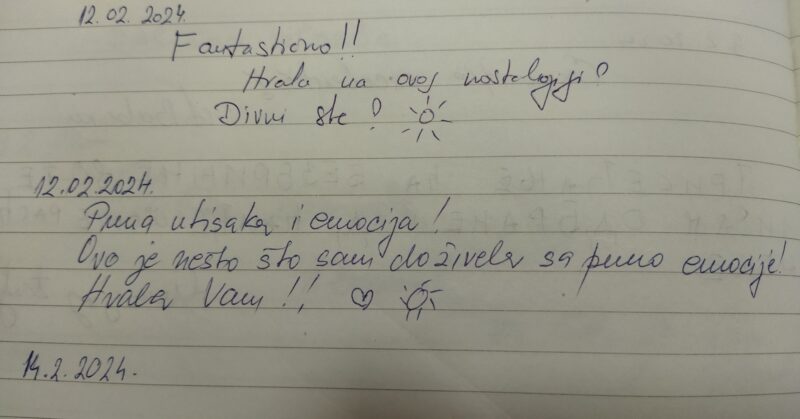 12.02.2024.
Fantastično!!
Hvala na ovoj nostalgiji!
Divni ste!
12.02.2024.
Puna utisaka i emocija!
Ovo je nešto što sam doživela sa puno emocije!
Hvala Vam!!
14.2.2024.